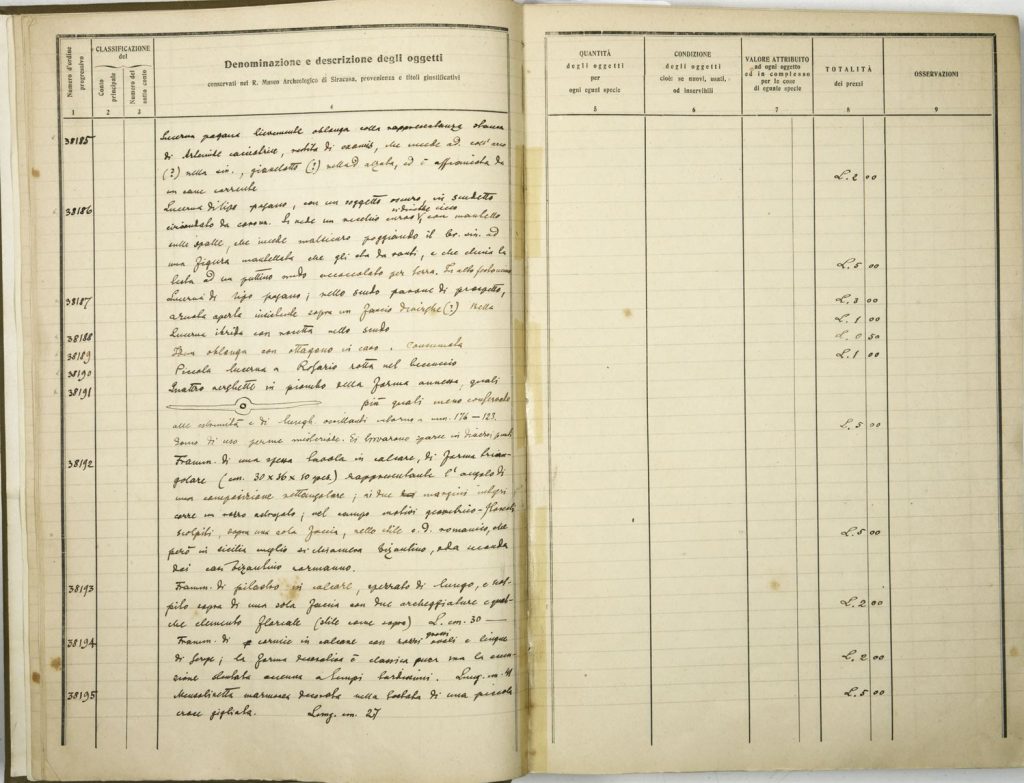 Numero d'ordine progressivo
CLASSIFICAZIONE del
Conto principale
Numero del sotto conto
Denominazione e descrizione degli oggetti
conservati nel R. Museo Archeologico di Siracusa, provenienza e titoli giustificativi
1 2 3 4
38185 Lucerna pagana lievemente oblonga colla rappresentanza
di Artemide cacciatrice, vestita di exomis, che incede ad. coll'arco
(?) nella sin., giavellotto (?) nella d. alzata, ed è affiancata da
un cane corrente
38186 Lucerna di tipo pagano, con un soggetto oscuro, in scudetto
circondato da corona. Si vede un vecchio curvo, con mantello
sulle spalle, che incede malsicuro poggiando il br. sin. ad
una figura mantellata che gli sta davanti, e che china la
testa ad un puttino nudo accoccolato per terra. In alto
38187 Lucerna di tipo pagano; nello scudo pavone di prospetto,
a ruota aperta insistente sopra un fascio di verghe (?) Bella
38188 Lucerna ibrida con rosetta nello scudo
38189 Idem oblonga con ottagono in cavo. Consumata
38190 Piccola lucerna a Rosario rotta nel beccuccio
38191 Quattro verghette in piombo della forma annessa, quali
più quali meno conservate
alle estremità e di lungh. oscillanti intorno a mm. 176 — 123.
di uso per me misteriose. Si trovarono sparse in diversi punti
38192 Framm. di una spessa tavola in calcare, di forma trian-
golare (cm. 30 x 36 x 10 spess.) rappresentante l'angolo di
una composizione rettangolare; ai due margini integri
corre un rozzo astragalo; nel campo motivi geometrico-floreali
scolpiti, sopra una sola faccia, nello stile c. d. romanico, che
però in Sicilia meglio si chiamerebbe bizantino, o a seconda
dei casi bizantino normanno.
38193 Framm. di pilastro in calcare, spezzato di lungo, e scol-
pito sopra di una sola faccia con due archeggiature e qual-
che elemento floreale (stile come sopra) L. cm. 30 —
38194 Framm. di cornice in calcare con rozzi grossi ovoli e lingue
di serpe; la forma decorativa è classica pura ma la esecu-
zione accenna a tempi tardissimi. Lung. cm. 41
38195 Mensolinetta marmorea decorata nella testata di una piccola
croce gigliata. Lung. cm. 27
QUANTITÀ degli oggetti per ogni eguale specie
CONDIZIONE degli oggetti cioè: se nuovi, usati, od inservibili
VALORE ATTRIBUITO ad ogni oggetto ed in complesso per le cose di eguale specie
TOTALITÀ dei prezzi
OSSERVAZIONI
5 6 7 8 9
L. 2 00
L. 5 00
L. 3 00
L. 1 00
L. 0 50
L. 1 00
L. 5 00
L. 5 00
L. 2 00
L. 2 00
L. 5 00